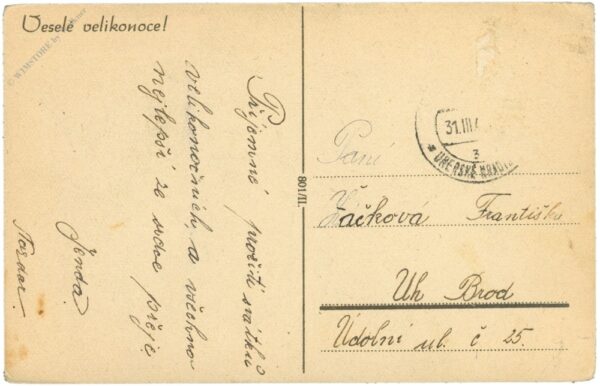 Veselé velikonoce!
Příjemné prožití svátků
velikonočních, a všechno
nejlepší ze srdce přeje
Jenda
801/II.
31.III.4
3
UHERSKÉ HRADI
Paní
Žáčková Františka
Uh Brod
Údolní ul. č 25.